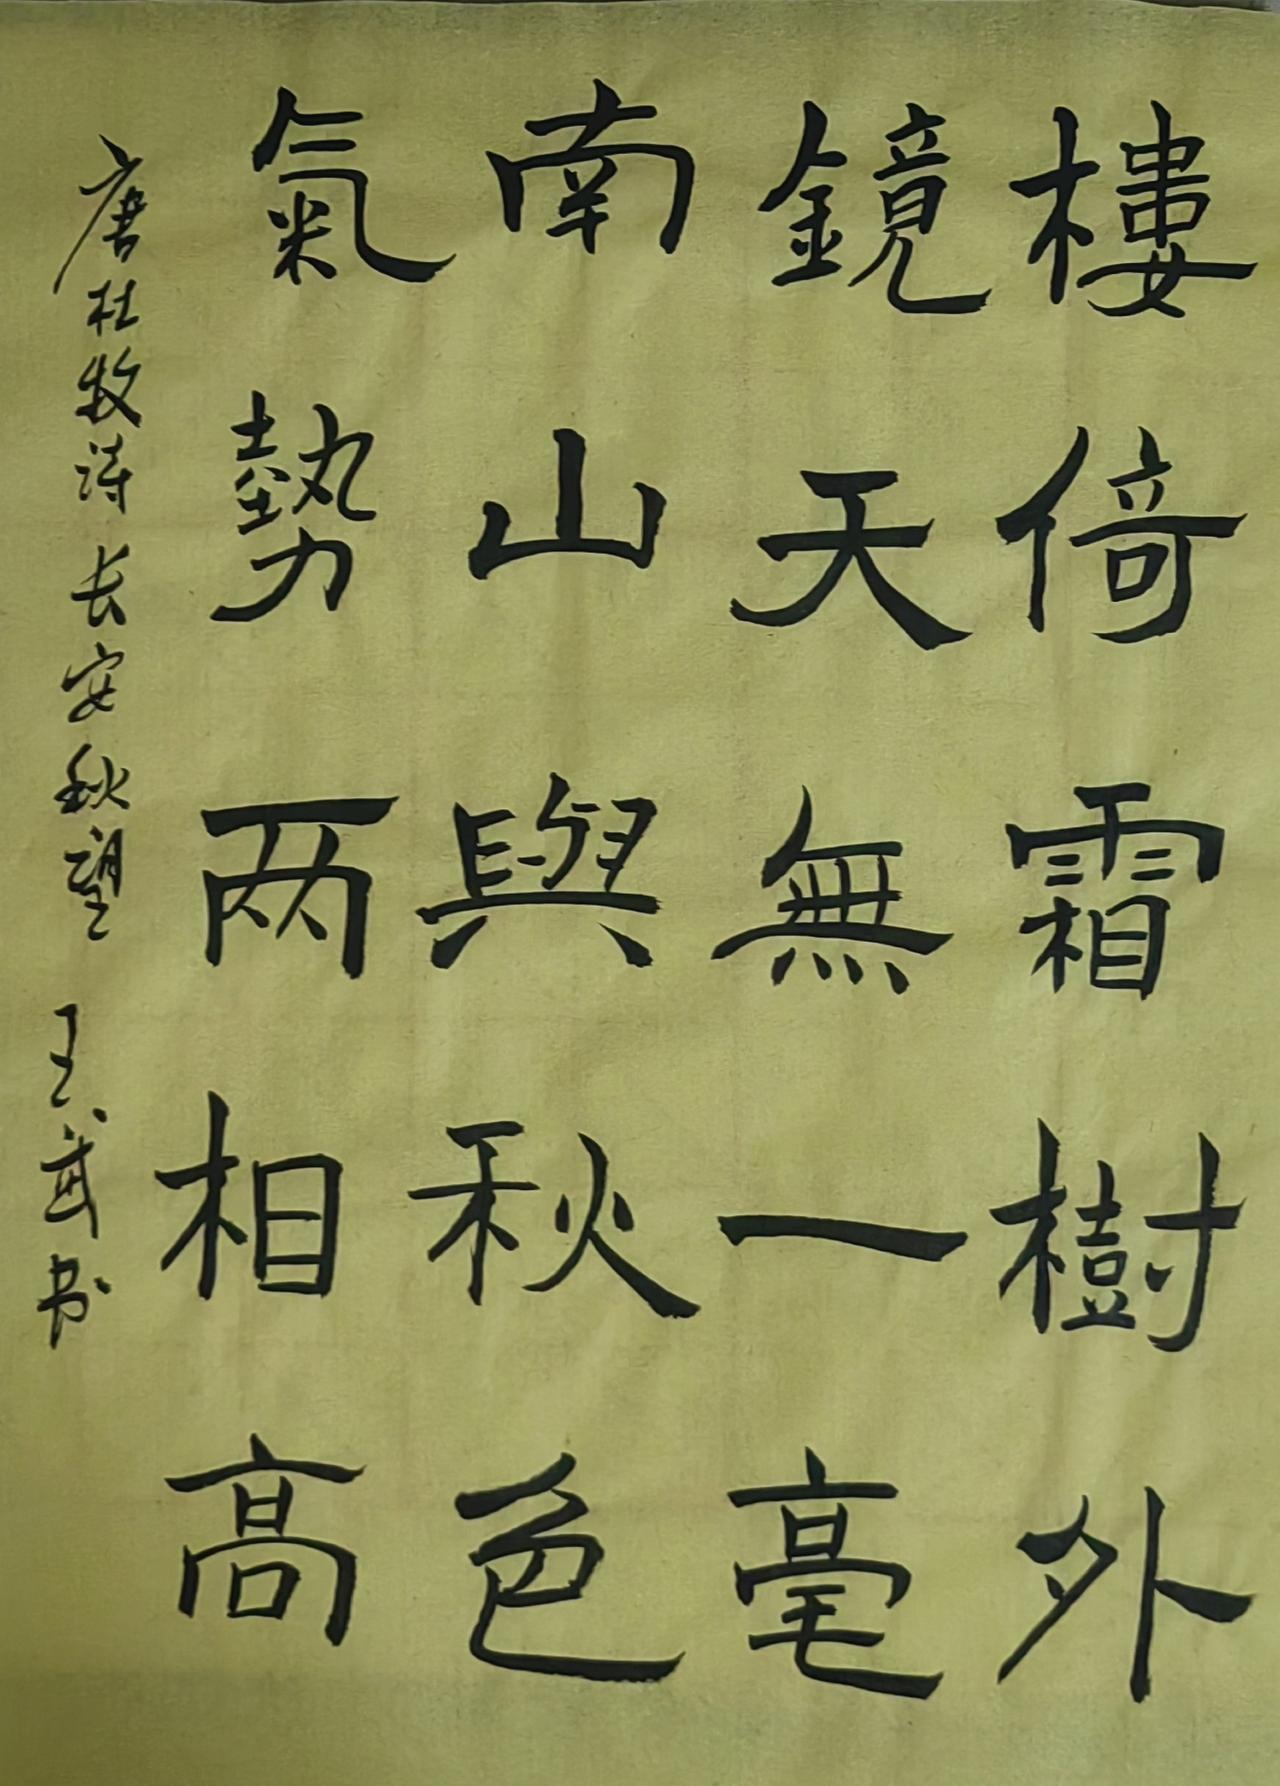 樓倚霜樹外
鏡天無一毫
南山與秋色
氣勢两相高
唐杜牧诗长安秋望 王武书